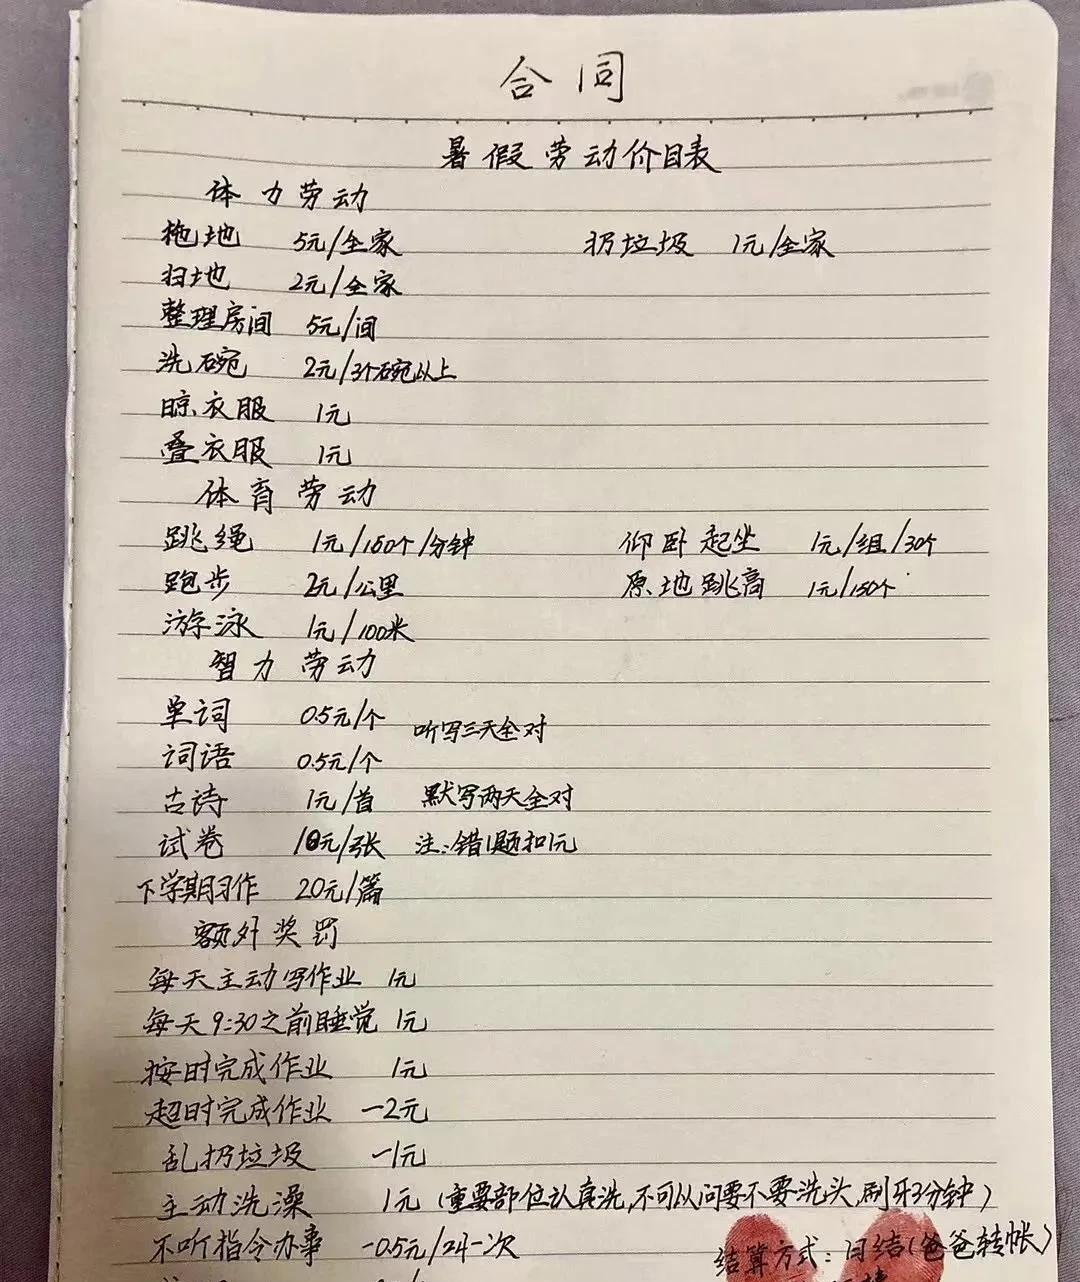 合同
暑假劳动价目表
体力劳动
拖地 5元/全家 扔垃圾 1元/全家
扫地 2元/全家
整理房间 5元/间
洗碗 2元/3个碗以上
晾衣服 1元
叠衣服 1元
体育劳动
跳绳 1元/160个/分钟 仰卧起坐 1元/组/30个
跑步 2元/公里 原地跳高 1元/150个
游泳 1元/100米
智力劳动
单词 0.5元/个 听写三天全对
词语 0.5元/个
古诗 1元/首 默写两天全对
试卷 10元/张 注:错1题扣1元
下学期习作 20元/篇
额外奖罚
每天主动写作业 1元
每天9:30之前睡觉 1元
按时完成作业 1元
超时完成作业 -2元
乱扔垃圾 -1元
主动洗澡 1元(重要部位认真洗,不可以问要不要洗头,刷牙3分钟)
不听指令办事 -0.5元/2次
结算方式:月结(爸爸转帐)